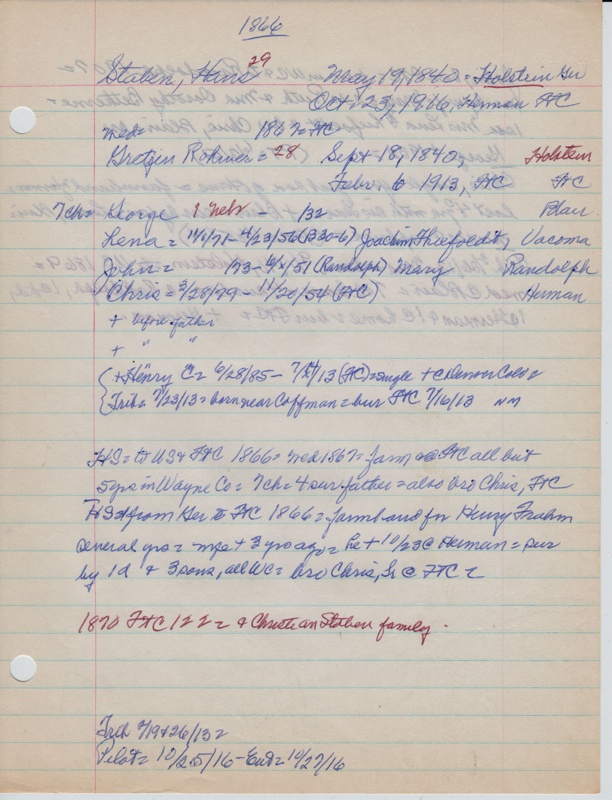 1866
Staben, Hans 29 May 19, 1840 = Holstein Ger
Oct 23, 1916, Herman FtC
med= 1867=FtC
Gretjen Rohwer = 28 Sept 18, 1840, Holstein
Febr. 6 1913, FtC FtC
7ch= George 1 Neb - /32 Blair
Lena = 11/1/71-4/23/56 (B30-6) Joachim Thiefoldt, Vacoma
John = /73-6/ /51 (Randolph) Mary Randolph
Chris = 3/28/79-11/20/54 (FtC) Herman
+ before father
+ " "
+ Henry C= 6/28/85- 7/14/13 (FtC)=single + @Denver Colo=
Trib= 7/23/13= born near Coffman= bur FtC 7/16/13 NM
HS= to US & FtC 1866= med 1867= farm @ FtC all but
5 yrs in Wayne Co= 7ch= 4 sur father= also bro Chris, FtC
HS= from Ger to FtC 1866= farmhand for Henry Frahm
several yrs= mfe + 3 yrs ago= he + 10/23 @ Herman= sur
by 1d & 3 sons, all WC= bro Chris, Sr @ FtC=
1870 FtC 122= & Christian Staben family.
Trib 7/19&26/13=
Pilot= 10/25/16-Ent= 10/27/16